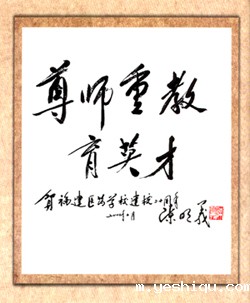 尊师重教
育英才
贺福建医药学校建校二十周年
二〇〇〇年八月
陈明义
m.yeshiqu.com